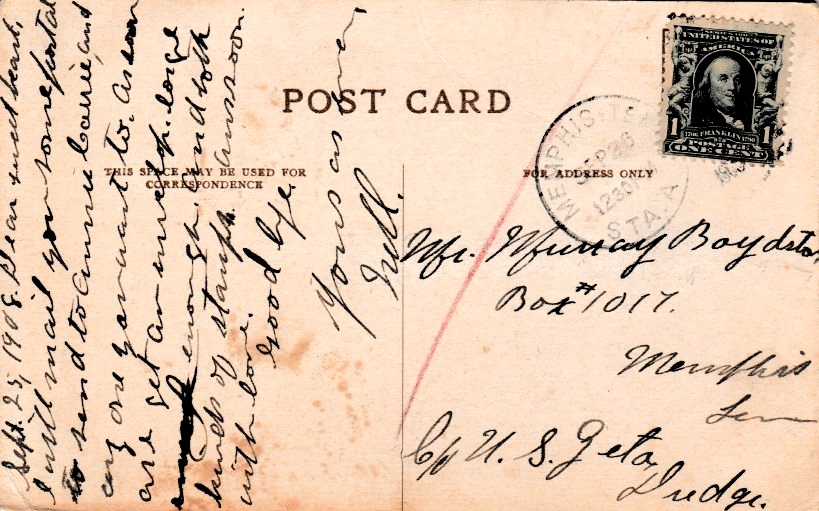 POST CARD
THIS SPACE MAY BE USED FOR
CORRESPONDENCE
FOR ADDRESS ONLY
Sept. 25, 1908. Dear sweet heart,
I will mail you some postal
to send to annie Carrie, and
any one you want to. as soon
are get an envelop. large
enough. and both
kinds of stamps.
with love.
Good bye.
Yours as ever,
Nell.
MEMPHIS, TE
SEP 26
1230P
STA. A
190
SERIES 1902
UNITED STATES OF
AMERICA
1 1
1706 FRANKLIN 1790
POSTAGE
ONE CENT
Mr. Murray Boydston
Box # 1017.
Memphis
Tenn
C/o U. S. Geta,
Dredge.